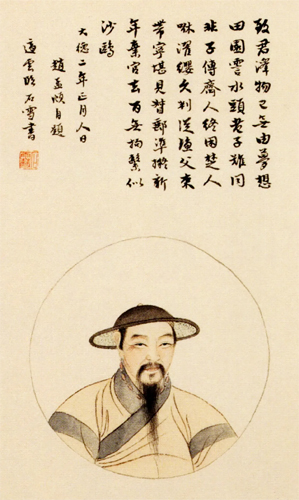 致君澤物已無由夢想
田園雲水頭老子難同
非子傳齊人終困楚人
咻濯纓久判從漁父束
帶寧堪見督郵準擬新
年棄官去百無拘繫似
沙鷗
大德二年正月人日
趙孟頫自題
雲石雪書